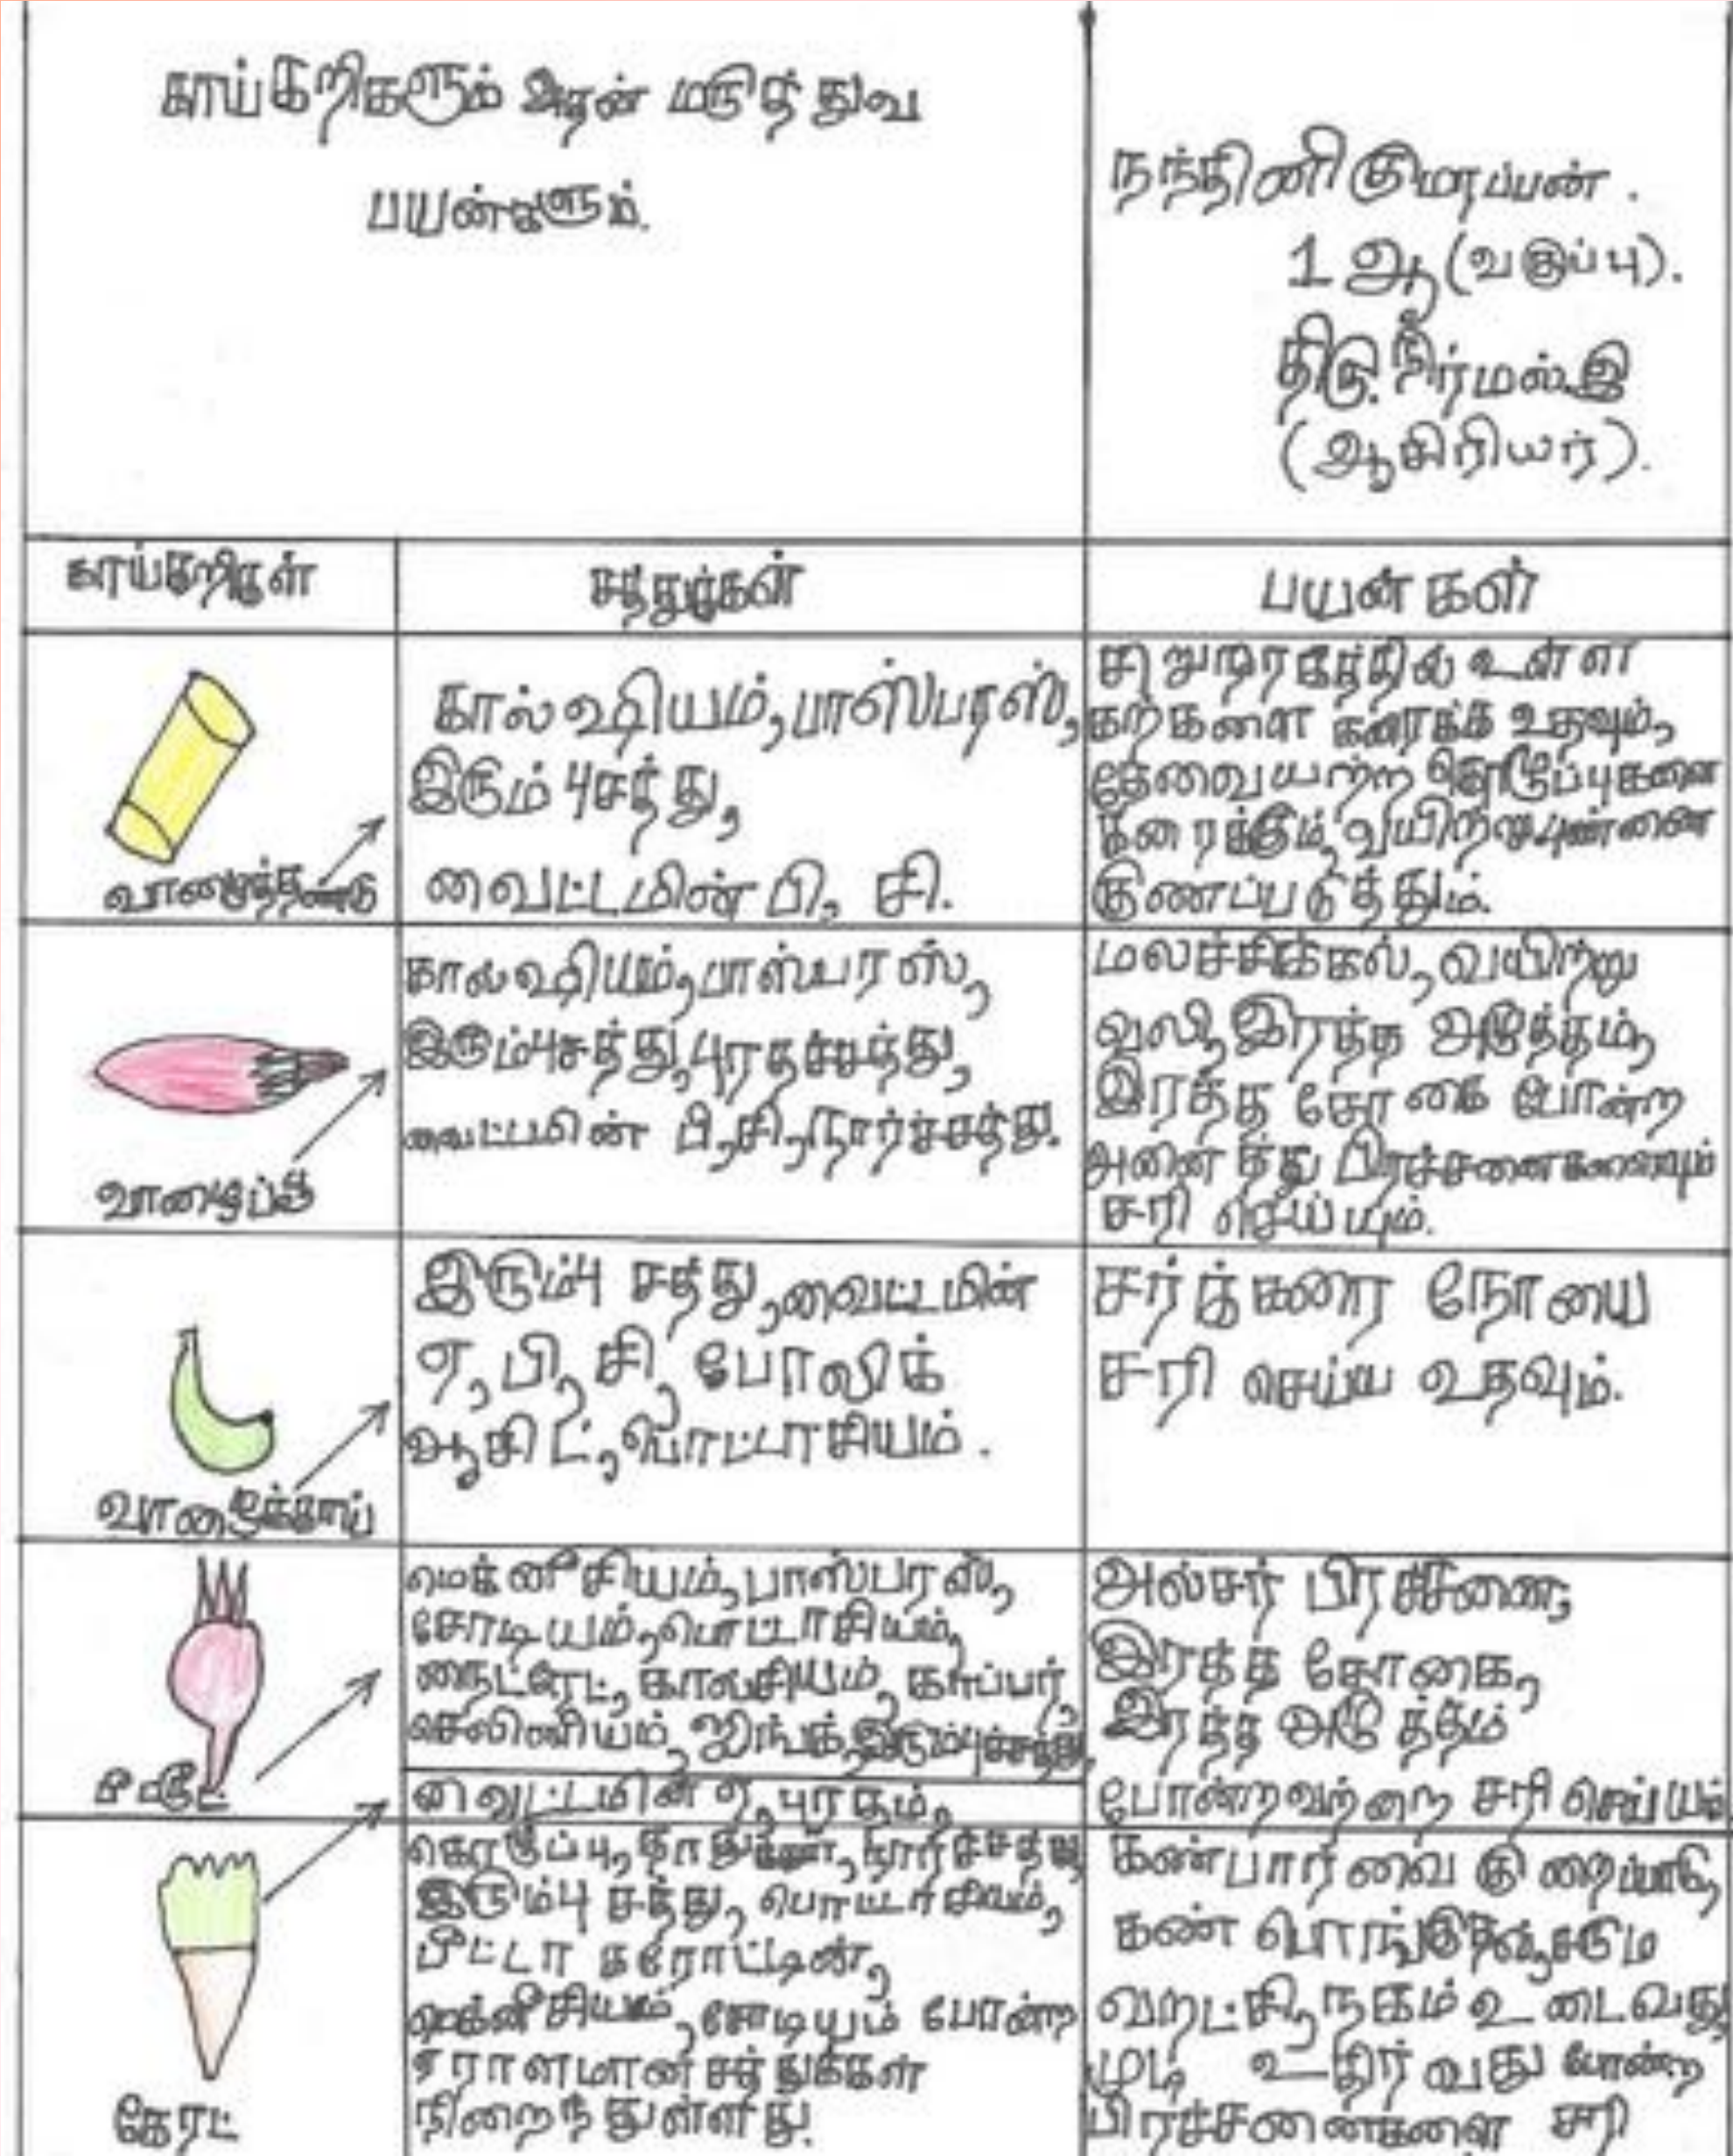 காய்கறிகளும் அதன் மருத்துவ
பயன்களும்.
நந்தினி குமரப்பன்.
1 ஆ (வகுப்பு).
திரு. நிர்மல்.இ
(ஆசிரியர்).
காய்கறிகள்
சத்துக்கள்
பயன்கள்
வாழைத்தண்டு
கால்ஷியம், பாஸ்பரஸ்,
இரும்புசத்து,
வைட்டமின் பி, சி.
சிறுநீரகத்தில் உள்ள
கற்களை கரைக்க உதவும்,
தேவையற்ற கொழுப்புகளை
கரைக்கும், வயிற்றுபுண்ணை
குணப்படுத்தும்.
வாழைப்பூ
கால்ஷியம், பாஸ்பரஸ்,
இரும்புசத்து, புரதச்சத்து,
வைட்டமின் பி, சி, நார்ச்சத்து.
மலச்சிக்கல், வயிற்று
வலி, இரத்த அழுத்தம்,
இரத்த சோகை போன்ற
அனைத்து பிரச்சனைகளையும்
சரி செய்யும்.
வாழைக்காய்
இரும்பு சத்து, வைட்டமின்
ஏ, பி, சி, போலிக்
ஆசிட், பொட்டாசியம்.
சர்க்கரை நோயை
சரி செய்ய உதவும்.
பீட்ரூட்
மெக்னீசியம், பாஸ்பரஸ்,
சோடியம், பொட்டாசியம்,
நைட்ரேட், கால்சியம், காப்பர்,
செலினியம், ஜிங்க், இரும்புச்சத்து,
அல்சர் பிரச்சனை,
இரத்த சோகை,
இரத்த அழுத்தம்
போன்றவற்றை சரி செய்யும்
கேரட்
வைட்டமின் ஏ, புரதம்,
கொழுப்பு, தாதுக்கள், நார்ச்சத்து,
இரும்பு சத்து, பொட்டாசியம்,
பீட்டா கரோட்டின்,
மெக்னீசியம், சோடியம் போன்ற
ஏராளமான சத்துக்கள்
நிறைந்துள்ளது.
கண்பார்வை குறைபாடு,
கண் பொங்குதல், சரும
வறட்சி, நகம் உடைவது,
முடி உதிர்வது போன்ற
பிரச்சனைகளை சரி